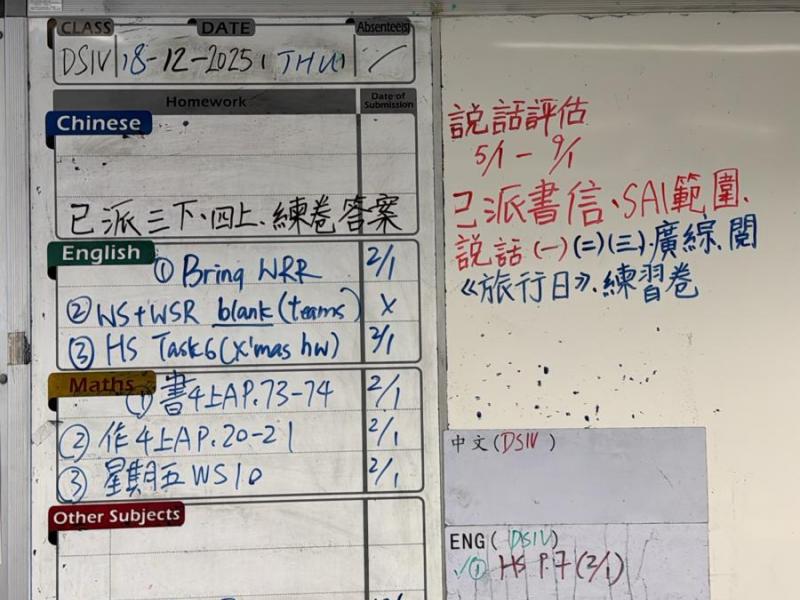 CLASS DATE Absentee(s)
DSIV 18-12-2025 ( THU )
Homework Date of Submission
Chinese
已派三下、四上、練卷答案
English
① Bring WRR 2/1
② WS+WSR blank (teams) X
③ HS Task6 (X'mas hw) 2/1
Maths
① 書4上A P.73-74 2/1
② 作4上A P.20-21 2/1
③ 星期五 WS10 2/1
Other Subjects
說話評估
5/1 - 9/1
已派書信、SA1範圍、
說話(一)(二)(三)、廣綜、閱
《旅行日》、練習卷
中文(DSIV)
ENG( DSIV)
✓① HS P.7 (2/1)